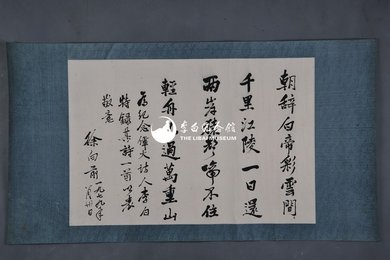 朝辞白帝彩雲間
千里江陵一日還
兩岸猿聲啼不住
輕舟已過萬重山
为纪念偉大詩人李白
特録其詩一首以表
敬意
徐向前 一九七九年
李白纪念馆